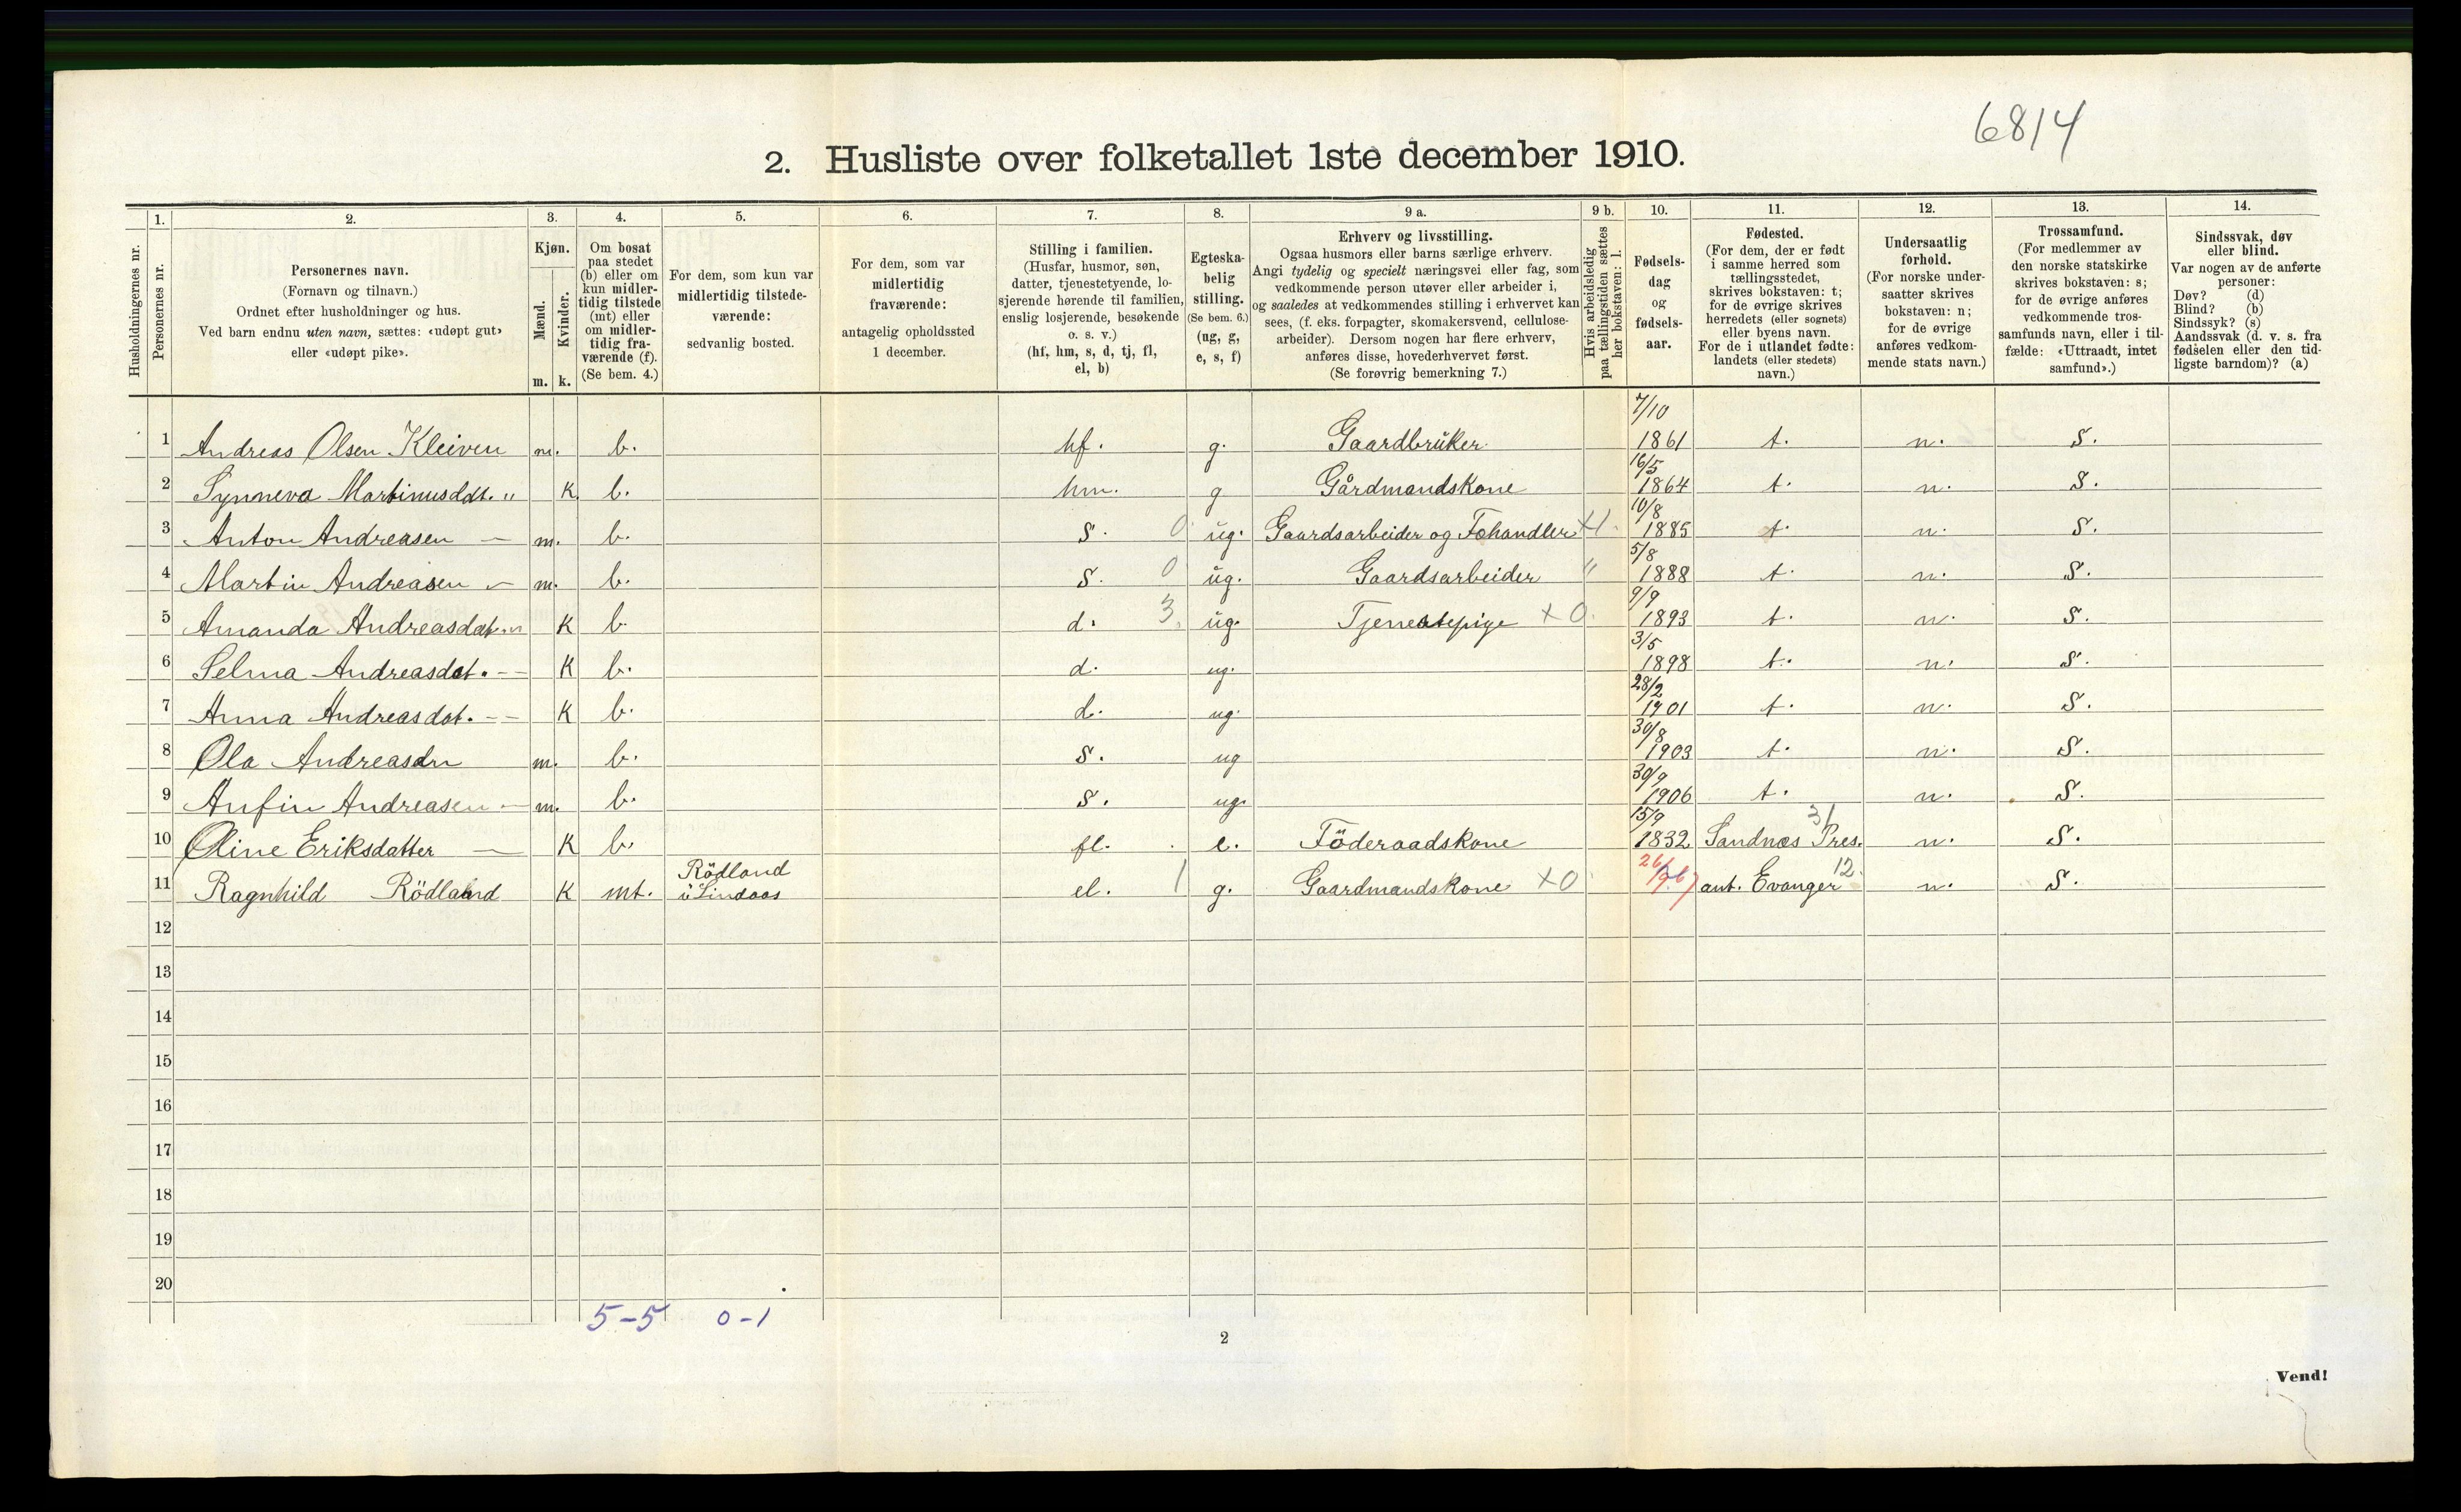 6814
2. Husliste over folketallet 1ste december 1910.
1. 2. 3. 4. 5. 6. 7. 8. 9 a. 9 b. 10. 11. 12. 13. 14.
Husholdningernes nr.
Personernes nr.
Personernes navn.
(Fornavn og tilnavn.)
Ordnet efter husholdninger og hus.
Ved barn endnu uten navn, sættes: «udøpt gut»
eller «udøpt pike».
Kjøn.
Mænd.
Kvinder.
m. k.
Om bosat
paa stedet
(b) eller om
kun midler-
tidig tilstede
(mt) eller
om midler-
tidig fra-
værende (f).
(Se bem. 4.)
For dem, som kun var
midlertidig tilstede-
værende:
sedvanlig bosted.
For dem, som var
midlertidig
fraværende:
antagelig opholdssted
1 december.
Stilling i familien.
(Husfar, husmor, søn,
datter, tjenestetyende, lo-
sjerende hørende til familien,
enslig losjerende, besøkende
o. s. v.)
(hf, hm, s, d, tj, fl,
el, b)
Egteska-
belig
stilling.
(Se bem. 6.)
(ug, g,
e, s, f)
Erhverv og livsstilling.
Ogsaa husmors eller barns særlige erhverv.
Angi tydelig og specielt næringsvei eller fag, som
vedkommende person utøver eller arbeider i,
og saaledes at vedkommendes stilling i erhvervet kan
sees, (f. eks. forpagter, skomakersvend, cellulose-
arbeider). Dersom nogen har flere erhverv,
anføres disse, hovederhvervet først.
(Se forøvrig bemerkning 7.)
Hvis arbeidsledig
paa tællingstiden sættes
her bokstaven: l.
Fødsels-
dag
og
fødsels-
aar.
Fødested.
(For dem, der er født
i samme herred som
tællingsstedet,
skrives bokstaven: t;
for de øvrige skrives
herredets (eller sognets)
eller byens navn.
For de i utlandet fødte:
landets (eller stedets)
navn.)
Undersaatlig
forhold.
(For norske under-
saatter skrives
bokstaven: n;
for de øvrige
anføres vedkom-
mende stats navn.)
Trossamfund.
(For medlemmer av
den norske statskirke
skrives bokstaven: s;
for de øvrige anføres
vedkommende tros-
samfunds navn, eller i til-
fælde: «Uttraadt, intet
samfund».)
Sindssvak, døv
eller blind.
Var nogen av de anførte
personer:
Døv? (d)
Blind? (b)
Sindssyk? (s)
Aandssvak (d. v. s. fra
fødselen eller den tid-
ligste barndom)? (a)
1 Andreas Olsen Kleiven m. b. hf. g. Gaardbrüker 7/10 1861 t. n. S.
2 Synneva Martinusddt. " K b. hm. g Gårdmandskone 16/5 1864 t. n. S.
3 Anton Andreasen — m. b. S. 0 ug. Gaardsarbeider og Fehandler 10/8 1885 t. n. S.
4 Martin Andreasen — m. b. S. 0 ug. Gaardsarbeider " 5/8 1888 t. n. S.
5 Amanda Andreasdat. K b. d. 3 ug. Tjenestepige x 0 9/9 1893 t. n. S.
6 Selma Andreasdat. -- K b. d. ug. 3/5 1898 t. n. S.
7 Anna Andreasdat. -- K b. d. ug. 28/2 1901 t. n. S.
8 Ola Andreasen m. b. S. ug 30/8 1903 t. n. S.
9 Anfin Andreasen — m. b. S. ug. 30/9 1906 t. n. S.
10 Oline Eriksdatter — K b. fl. e. Föderaadskone 15/9 1832 Sandnæs Pres. 31 n. S.
11 Ragnhild Rödland K mt. Rödland i Lindaas el. 1 g. Gaardmandskone x 0 ant. Evanger 12. n. S.
12
13
14
15
16
17
18
19
20
5-5 0-1
2
Vend!